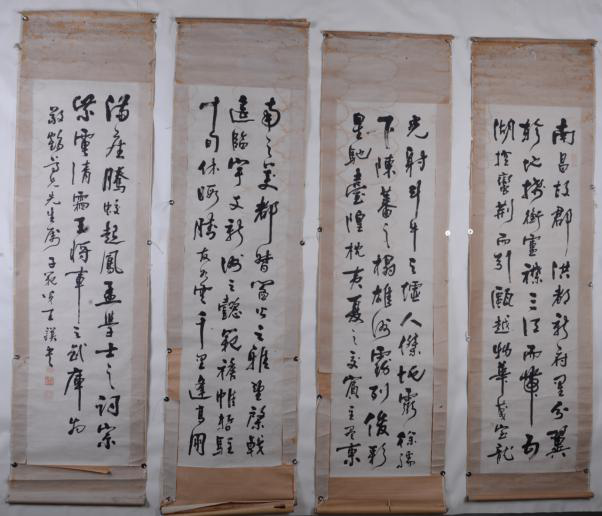 南昌故郡洪都新府星分翼
軫地接衡廬襟三江而帶五
湖控蠻荊而引甌越物華天寶龍
光射斗牛之墟人傑地靈徐孺
下陳蕃之榻雄州霧列俊彩
星馳臺隍枕夷夏之交賓主盡東
南之美都督閻公之雅望棨戟
遙臨宇文新州之懿範襜帷暫駐
十旬休暇勝友如雲千里逢
滿座騰蛟起鳳孟學士之詞宗
紫電清霜王將軍之武庫為
鶴 兄先生屬子範 王 書